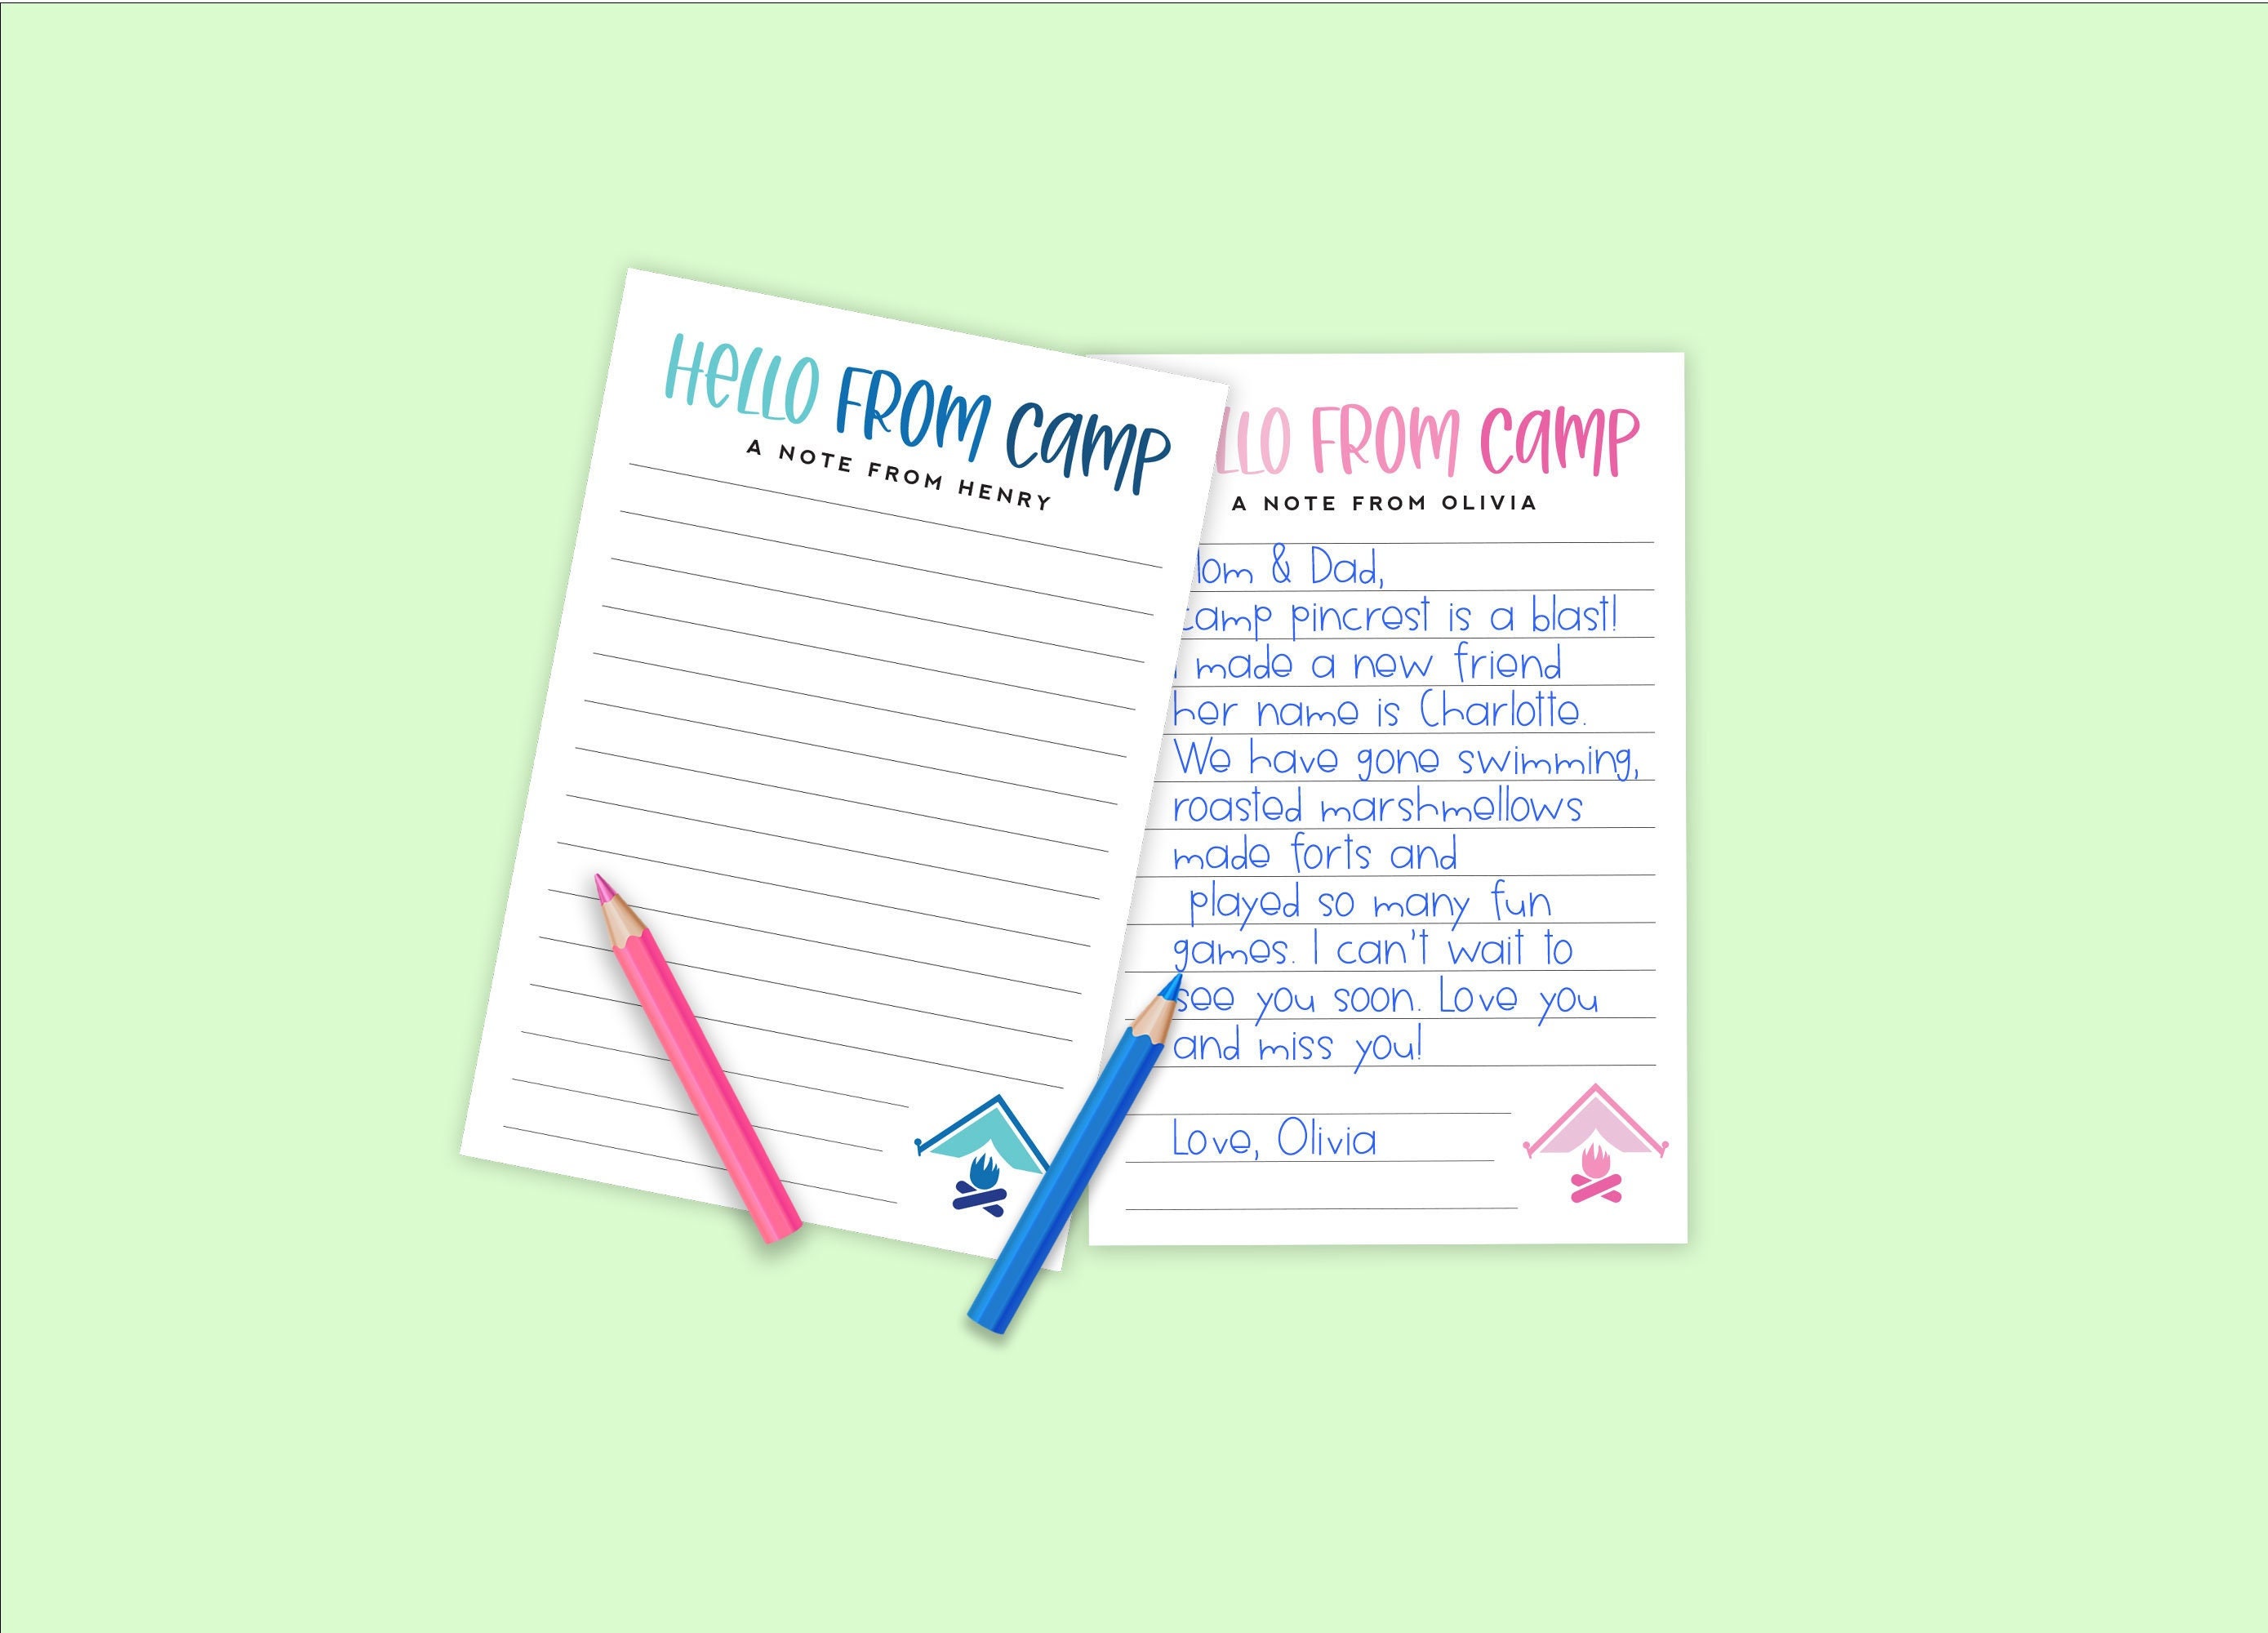 HELLO FROM CAMP
A NOTE FROM HENRY
LLO FROM CAMP
A NOTE FROM OLIVIA
om & Dad,
camp pincrest is a blast!
I made a new friend
her name is Charlotte.
We have gone swimming,
roasted marshmellows
made forts and
played so many fun
games. I can't wait to
see you soon. Love you
and miss you!
Love, Olivia